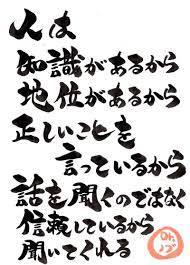 人は
知識があるから
地位があるから
正しいことを
言っているから
話を聞くのではなく
信頼しているから
聞いてくれる